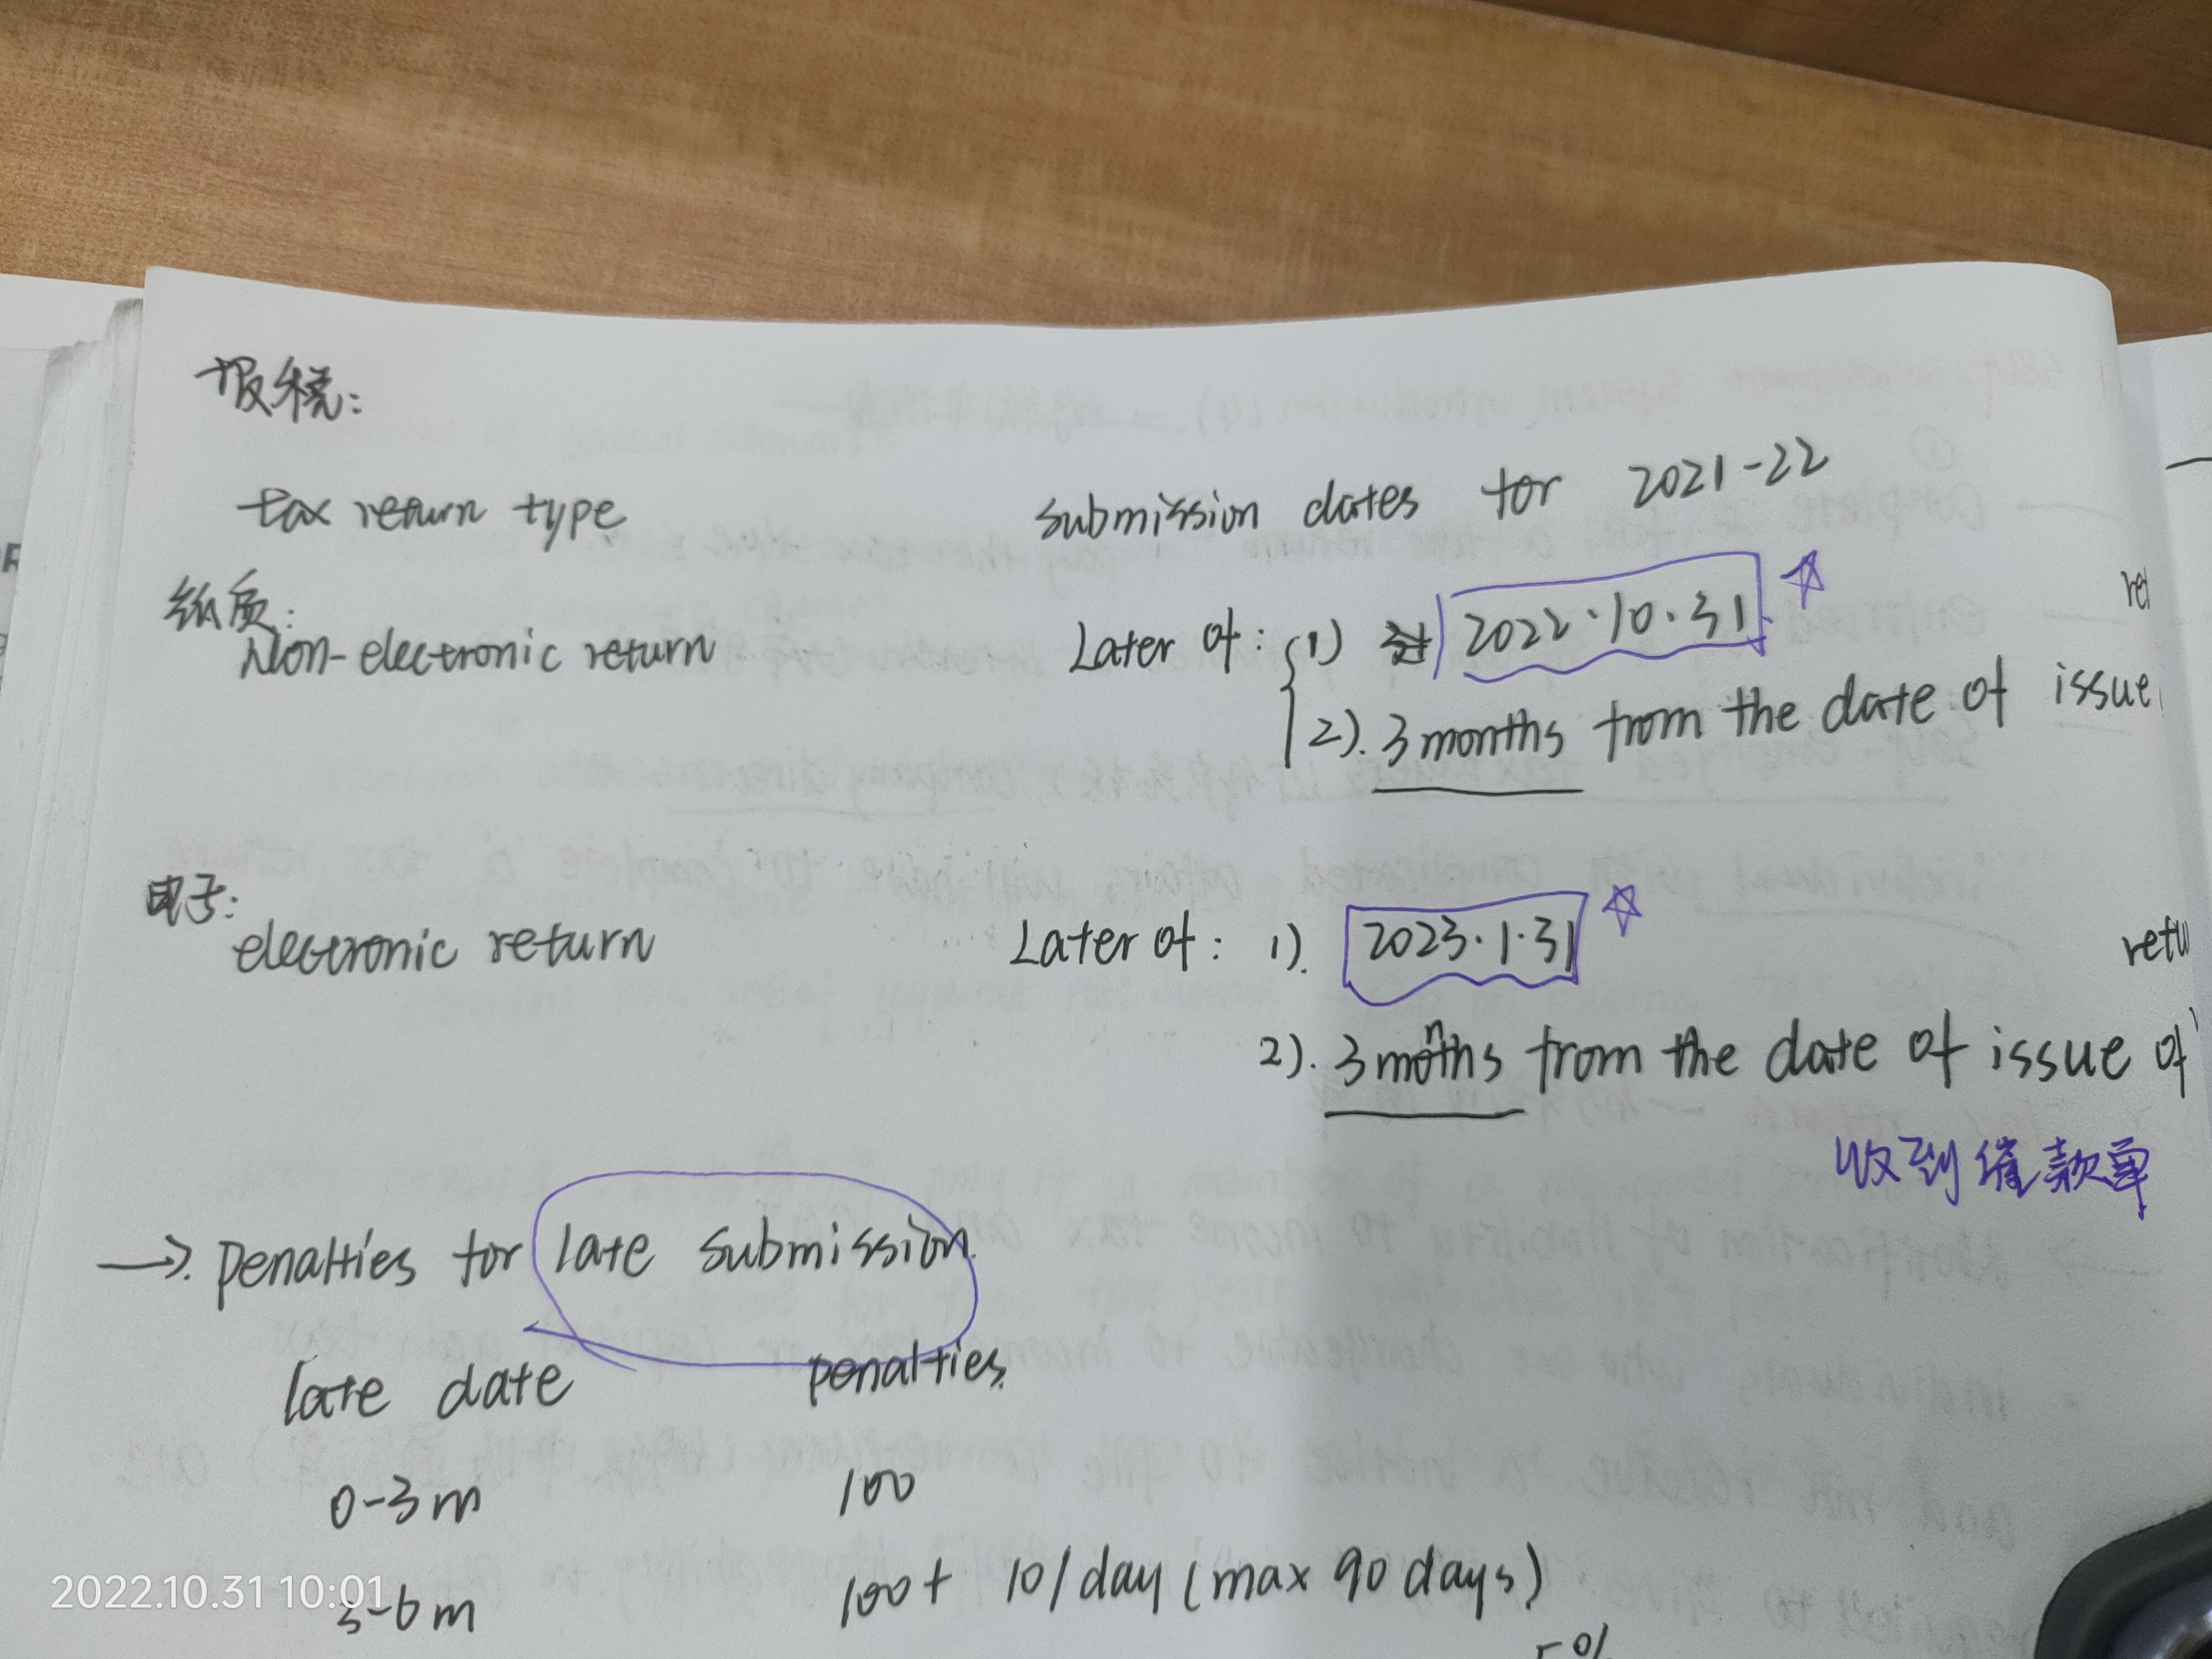 报税:
tax return type submission dates for 2021-22
纸质:
Non-electronic return Later of: 1) 2022.10.31
2). 3 months from the date of issue
电子:
electronic return Later of: 1). 2023.1.31
2). 3 months from the date of issue of
收到催款单
→. penalties for late submission.
late date penalties.
0-3m 100
3-6m 100+ 10/day (max 90 days)
5%
2022.10.31 10:01